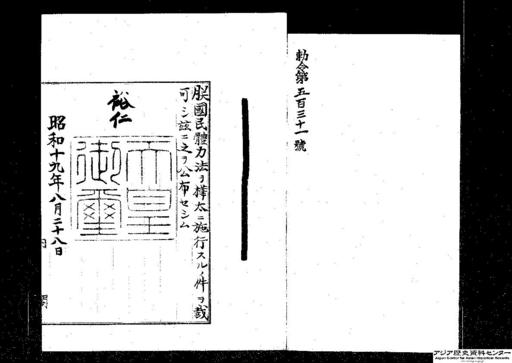 勅令第五百三十一號
朕國民體力法ヲ樺太ニ施行スルノ件ヲ裁
可シ茲ニ之ヲ公布セシム
裕仁
天皇
御璽
昭和十九年八月二十八日
内閣
アジア歴史資料センター
Japan Center for Asian Historical Records